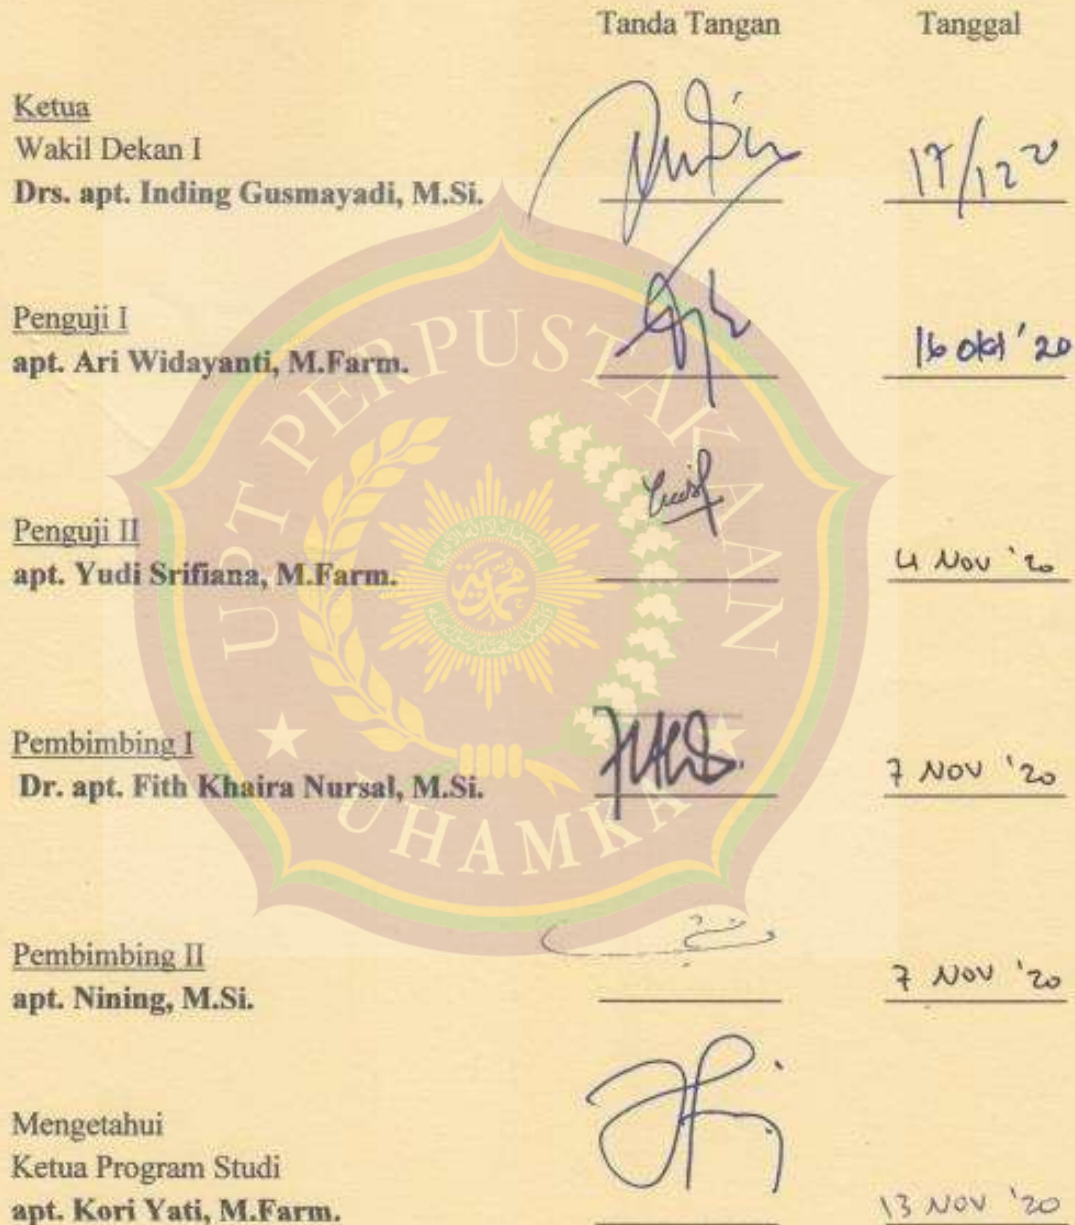 Tanda Tangan Tanggal
Ketua
Wakil Dekan I
Drs. apt. Inding Gusmayadi, M.Si.
17/12 20
Penguji I
apt. Ari Widayanti, M.Farm.
16 okt '20
Penguji II
apt. Yudi Srifiana, M.Farm.
4 Nov '20
Pembimbing I
Dr. apt. Fith Khaira Nursal, M.Si.
7 Nov '20
Pembimbing II
apt. Nining, M.Si.
7 Nov '20
Mengetahui
Ketua Program Studi
apt. Kori Yati, M.Farm.
13 Nov '20
UPT PERPUSTAKAAN
UHAMKA